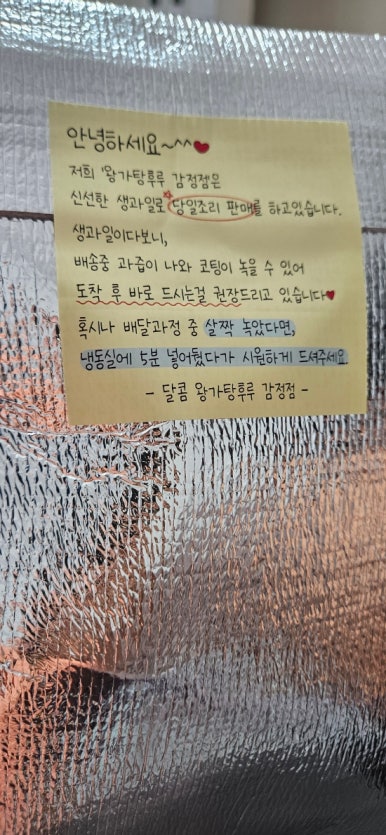 안녕하세요~^^♥
저희 '왕가탕후루 감정점'은
신선한 생과일로 당일조리 판매를 하고있습니다.
생과일이다보니,
배송중 과즙이 나와 코팅이 녹을 수 있어
도착 후 바로 드시는걸 권장드리고 있습니다♥
혹시나 배달과정 중 살짝 녹았다면,
냉동실에 5분 넣어뒀다가 시원하게 드셔주세요.
- 달콤 왕가탕후루 감정점 -